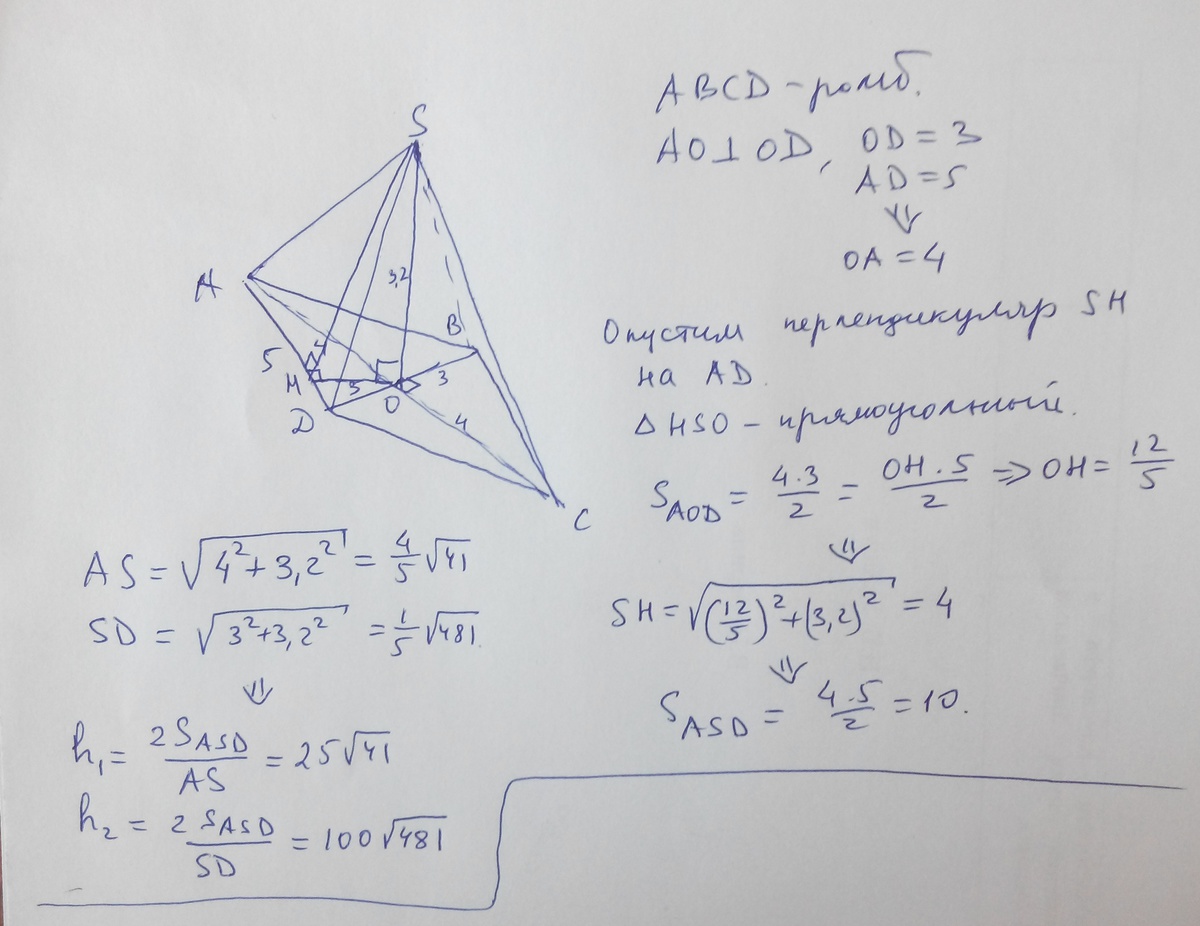 S
A
B
C
D
H
O
3,2
5
3
3
4
ABCD – ромб.
AO⊥OD, OD = 3
AD = 5
⇓
OA = 4
Опустим перпендикуляр SH
на AD.
△HSO – прямоугольный.
S_AOD = 4·3/2 = OH·5/2 ⇒ OH = 12/5
⇓
SH = √((12/5)² + (3,2)²) = 4
⇓
S_ASD = 4·5/2 = 10.
AS = √(4² + 3,2²) = 4/5 √41
SD = √(3² + 3,2²) = 1/5 √481.
⇓
h₁ = 2S_ASD/AS = 25√41
h₂ = 2S_ASD/SD = 100√481